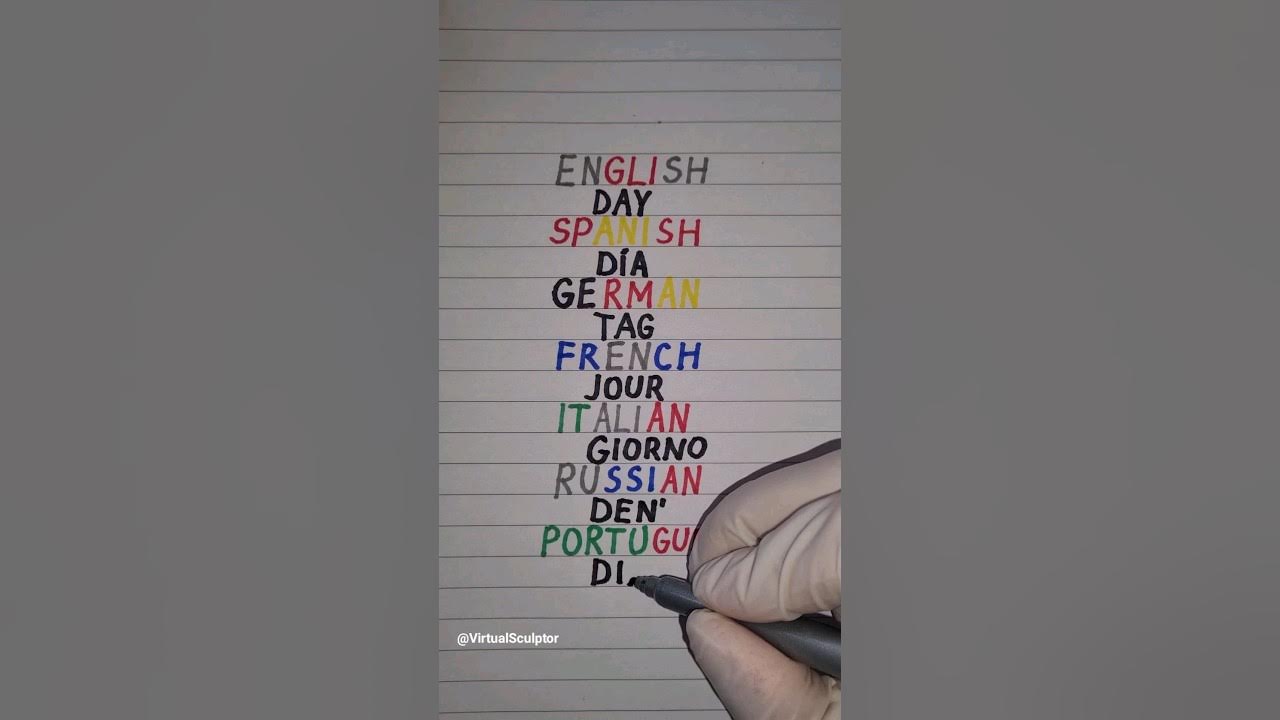 ENGLISH
DAY
SPANISH
DÍA
GERMAN
TAG
FRENCH
JOUR
ITALIAN
GIORNO
RUSSIAN
DEN'
PORTUGU
DI
@VirtualSculptor